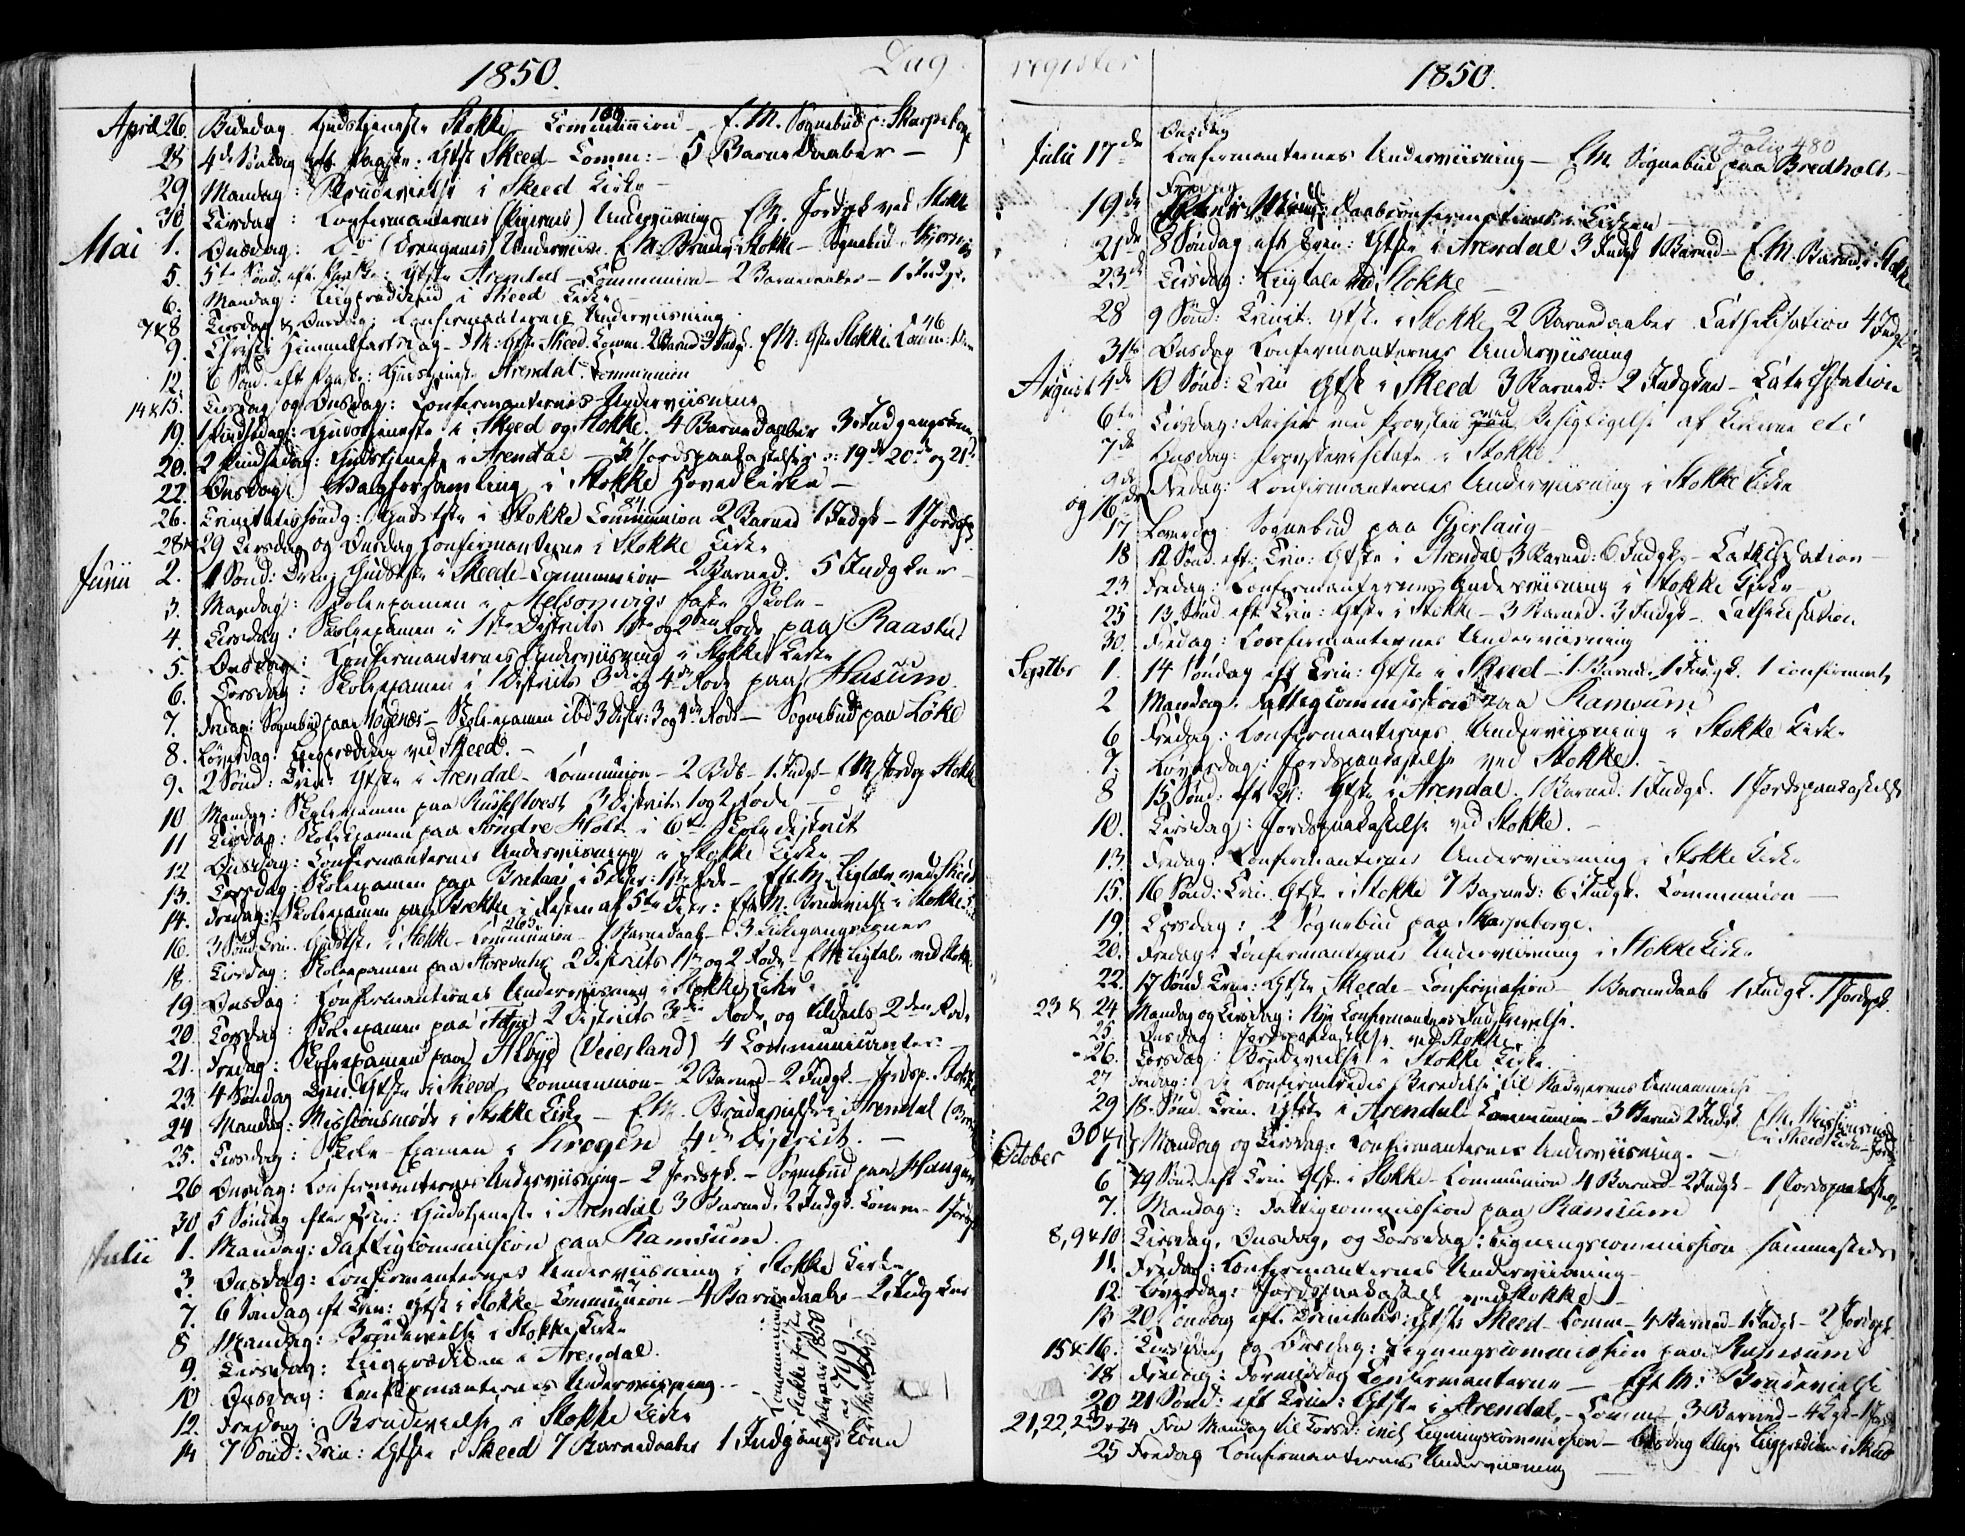 Dag
1850.
April 26. Bededag. Gudstjeneste Stokke - Communion - E. M. Sognebud p: Skarpeborge
28 4de Søndag eft Paaske: Gtste Skeed - Comm: - 5 BarneDaaber -
29. Mandag: Brudevielse i Skeed Kirke -
30. Tirsdag: Confirmanternes (Pigernes) Underviisning EM. Jordpk ved Stokke
Mai 1. Onsdag: Do (Drengenes) Underviisn. E.M. Brudev: Stokke - Sognebud
5. 5te Sønd. eft. Paaske: Gtste Arendal - Communion - 2 Barnedaaber - 1 Indgk.
6. Mandag: Liigprædiken i Skeed Kirke -
7&8 Tirsdag & Onsdag: Confirmanternes Underviisning.
9. Christi Himmelfartsdag - FM: Gtste Skeed. Comm. 2 Barned 3 Indgk. EM: Gtste Stokke. Comm:
12. 6 Sønd. eft Paaske: Gudstjeneste Arendal. Communion
14&15. Tirsdag og Onsdag: Confirmanternes Underviisning
19. 1 Pindsedag: Gudstjeneste i Skeed og Stokke. 4 BarneDaaber 3 Indgangskoner
20. 2 Pindsedag: Gudstjeneste i Arendal - Jordpaakastelser 19de 20de og 21de
22. Onsdag: Valgforsamling i Stokke Hovedkirke -
26. Trinitatissøndg: Gudstste i Stokke Communion 2 Barned 1 Indgk - 1 Jordpk
28& 29 Tirsdag og Onsdag Confirmanterne i Stokke Kirke
Junii 2. 1 Sønd: Trin: Gudstste i Skeede - Communion - 2 Barned. 5 Indgkner -
3. Mandag: Skoleexamen i Melsomvigs faste Skole -
4. Tirsdag: Skoleexamen i 1ste Districts 1ste og 2den Rode paa Raastad
5. Onsdag: Confirmanternes Underviisning i Stokke Kirke
6. Torsdag: Skoleexamen i 1 Districts 3die og 4de Rode paa Husum.
7. Fredag: Sognebud paa Vognæs - Skoleexamen ibd 3 Distr: 3 og 4de Rode - Sognebud paa Løke
8. Løverdag. Liigprædiken ved Skeed. -
9. 2 Sønd: Trin: Gtste i Arendal - Communion - 2 Bdb - 1 Indgk - EM Jordpk Stokke
10 Mandag: Skoleexamen paa 3 Districts 1 og 2 Rode -
11 Tirsdag: Skoleexamen paa Søndre Holt i 6te Skoledistrict
12 Onsdag: Confirmanternes Underviisning i Stokke Kirke
13. Torsdag: Skoleexamen paa i 5 Distr: 1ste Rode - Eft. M. Liigtale ved Skeed
14. Fredag: Skoleexamen paa Brekke i Resten af 5te Distr: Eft. M. Brudevielse i Stokke K
16. 3 Sønd Trin. Gudstste i Stokke - Communion - 1 Barnedaab - 3 Kirkegangskoner
18. Tirsdag: Skoleexamen paa 2 Districts 1ste og 2 Rode - EM Liigtale ved Stokke
19 Onsdag: Confirmanternes Underviisning i Stokke Kirke
20. Torsdag: Skoleexamen paa 2 Districts 3die Rode, og tildeels 2den Rode
21. Fredag: Skoleexamen paa Albye (Veierland) 4 Communicanter -
23. 4 Søndag Trin: Gtste i Skeed, Communion - 2 Barned - 2 Indgk - Jordsp. i Stokke
24 Mandag: Missionsmøde i Stokke Kirke - E.M. Brudevielse i Arendal
25. Tirsdag: Skole-Examen i Krogen 4de District. -
26 Onsdag: Confirmanternes Underviisning - 2 Jordspk. - Sognebud paa
30 5 Søndag efter Trin: Gudstjeneste i Arendal 3 Barned. 2 Indgk. Comm - 1 Jordpk
Julii 1. Mandag: Fattigcommission paa Ramsum.
3. Onsdag: Confirmanternes Underviisning i Stokke Kirke
7. 6 Søndag eft Trin: Gtste i Stokke - Communion - 4 Barnedaaber - 2 Indgkner
8 Mandag: Brudevielse i Stokke Kirke
9. Tirsdag: Liigprædiken i Arendal.
10 Onsdag: Confirmanternes Underviisning. -
12. Fredag: Brudevielse i Stokke Kirke
14 7 Sønd: Trin: Gtste i Skeed 7 Barnedaaber 1 Indgangskone
register
1850.
Folio 480
Julii 17de Onsdag Confirmanternes Underviisning - EM Sognebud paa Bredholt -
19de Fredag Daabsconfirmation i Kirken
21de 8 Søndag eft Trin: Gtste i Arendal 3 Indgk 1 Barned - E.M. Barned. i Stokke
23de Tirsdag: Liigtale ved Stokke -
28 9 Sønd: Trinit: Gtste i Stokke 2 Barnedaaber Cathekisation 4 Indgk
31te Onsdag Confirmanternes Underviisning
August 4de 10 Sønd: Trin Gtste i Skeed 3 Barned: 2 Indgkner - Catechisation
6te Tirsdag: Reiser med Provsten med Besigtigelse af Kirkerne etc
7de Onsdag: Provstevisitats i Stokke.
9de og 16de Fredag: Confirmanternes Underviisning i Stokke Kirke
17 Løverdag Sognebud paa Gjerlaug -
18 12 Sønd. eft: Trin: Gtste i Arendal 3 Barned: 6 Indgk - Cathekisation -
23 Fredag Confirmanternes Underviisning i Stokke Kirke
25 13 Sønd eft Trin: Gtste i Stokke - 3 Barned. 3 Indgk - Cathekisation
30. Fredag: Confirmanternes Underviisning
Septbr 1. 14 Søndag eft Trin: Gtste i Skeed - 1 Barned. 1 Indgk. 1 confirmeret
2 Mandag: Fattigcommission paa Ramsum
6 Fredag: Confirmanternes Underviisning i Stokke Kirke
7. Løverdag: Jordspaakastelse ved Stokke. -
8 15 Sønd: eft Tr: Gtste i Arendal. 1 Barned. 1 Indgk. 1 Jordspaakastelse
10. Tirsdag: Jordspaakastelse ved Stokke. -
13. Fredag: Confirmanternes Underviisning i Stokke Kirke
15. 16 Sønd: Trin. Gtste i Stokke 7 Barned: 6 Indgk. Communion -
19. Torsdag: 2 Sognebud paa Skarpeborge.
20. Fredag: Confirmanternes Underviisning i Stokke Kirke
22. 17 Sønd. Trin: Gtste Skeede - Confirmation - 1 Barnedaab 1 Indgk. 1 Jordspk.
23 & 24 Mandag og Tirsdag: Nye Confirmanters Indskrivelse.
25. Onsdag: Jordspaakastelse ved Stokke
26. Torsdag: Brudevielse i Stokke Kirke
27 Fredag: De Confirmeredes Beredelse til Nadverens Annammelse
29 18. Sønd. Trin. Gtste i Arendal - Communion - 3 Barned 2 Indgk. EM. Missionsmøde i Skeed Kirke -
30 & October 1 Mandag og Tirsdag: Confirmanternes Underviisning. -
6 19 Sønd. eft Trin Gtste i Stokke - Communion 4 Barned - 2 Indgk - 1 Jordspaakastelse
7. Mandag: Fattigcommission paa Ramsum
8, 9 & 10 Tirsdag, Onsdag, og Torsdag: Ligningscommission sammesteds
11. Fredag: Confirmanternes Underviisning -
12 Løverdag: Jordspaakastels ved Stokke
13 20 Søndag eft. Trinitatis: Gtste Skeed - Comm - 4 Barned - 1 Indgk - 2 Jordspk
15 & 16. Tirsdag og Onsdag: Ligningscommission paa Ramsum
18 Fredag: Formiddag Confirmanterne - Eft M: Brudevielse
20 21 Sønd: eft Trin: Gtste i Arendal, - Comm 3 Barned - 4 Igk - 1 Jordsp
21, 22, 23 & 24 Fra Mandag til Torsd: incl Ligningscommission - Liigprædiken i Skeed
25 Fredag Confirmanternes Underviisning